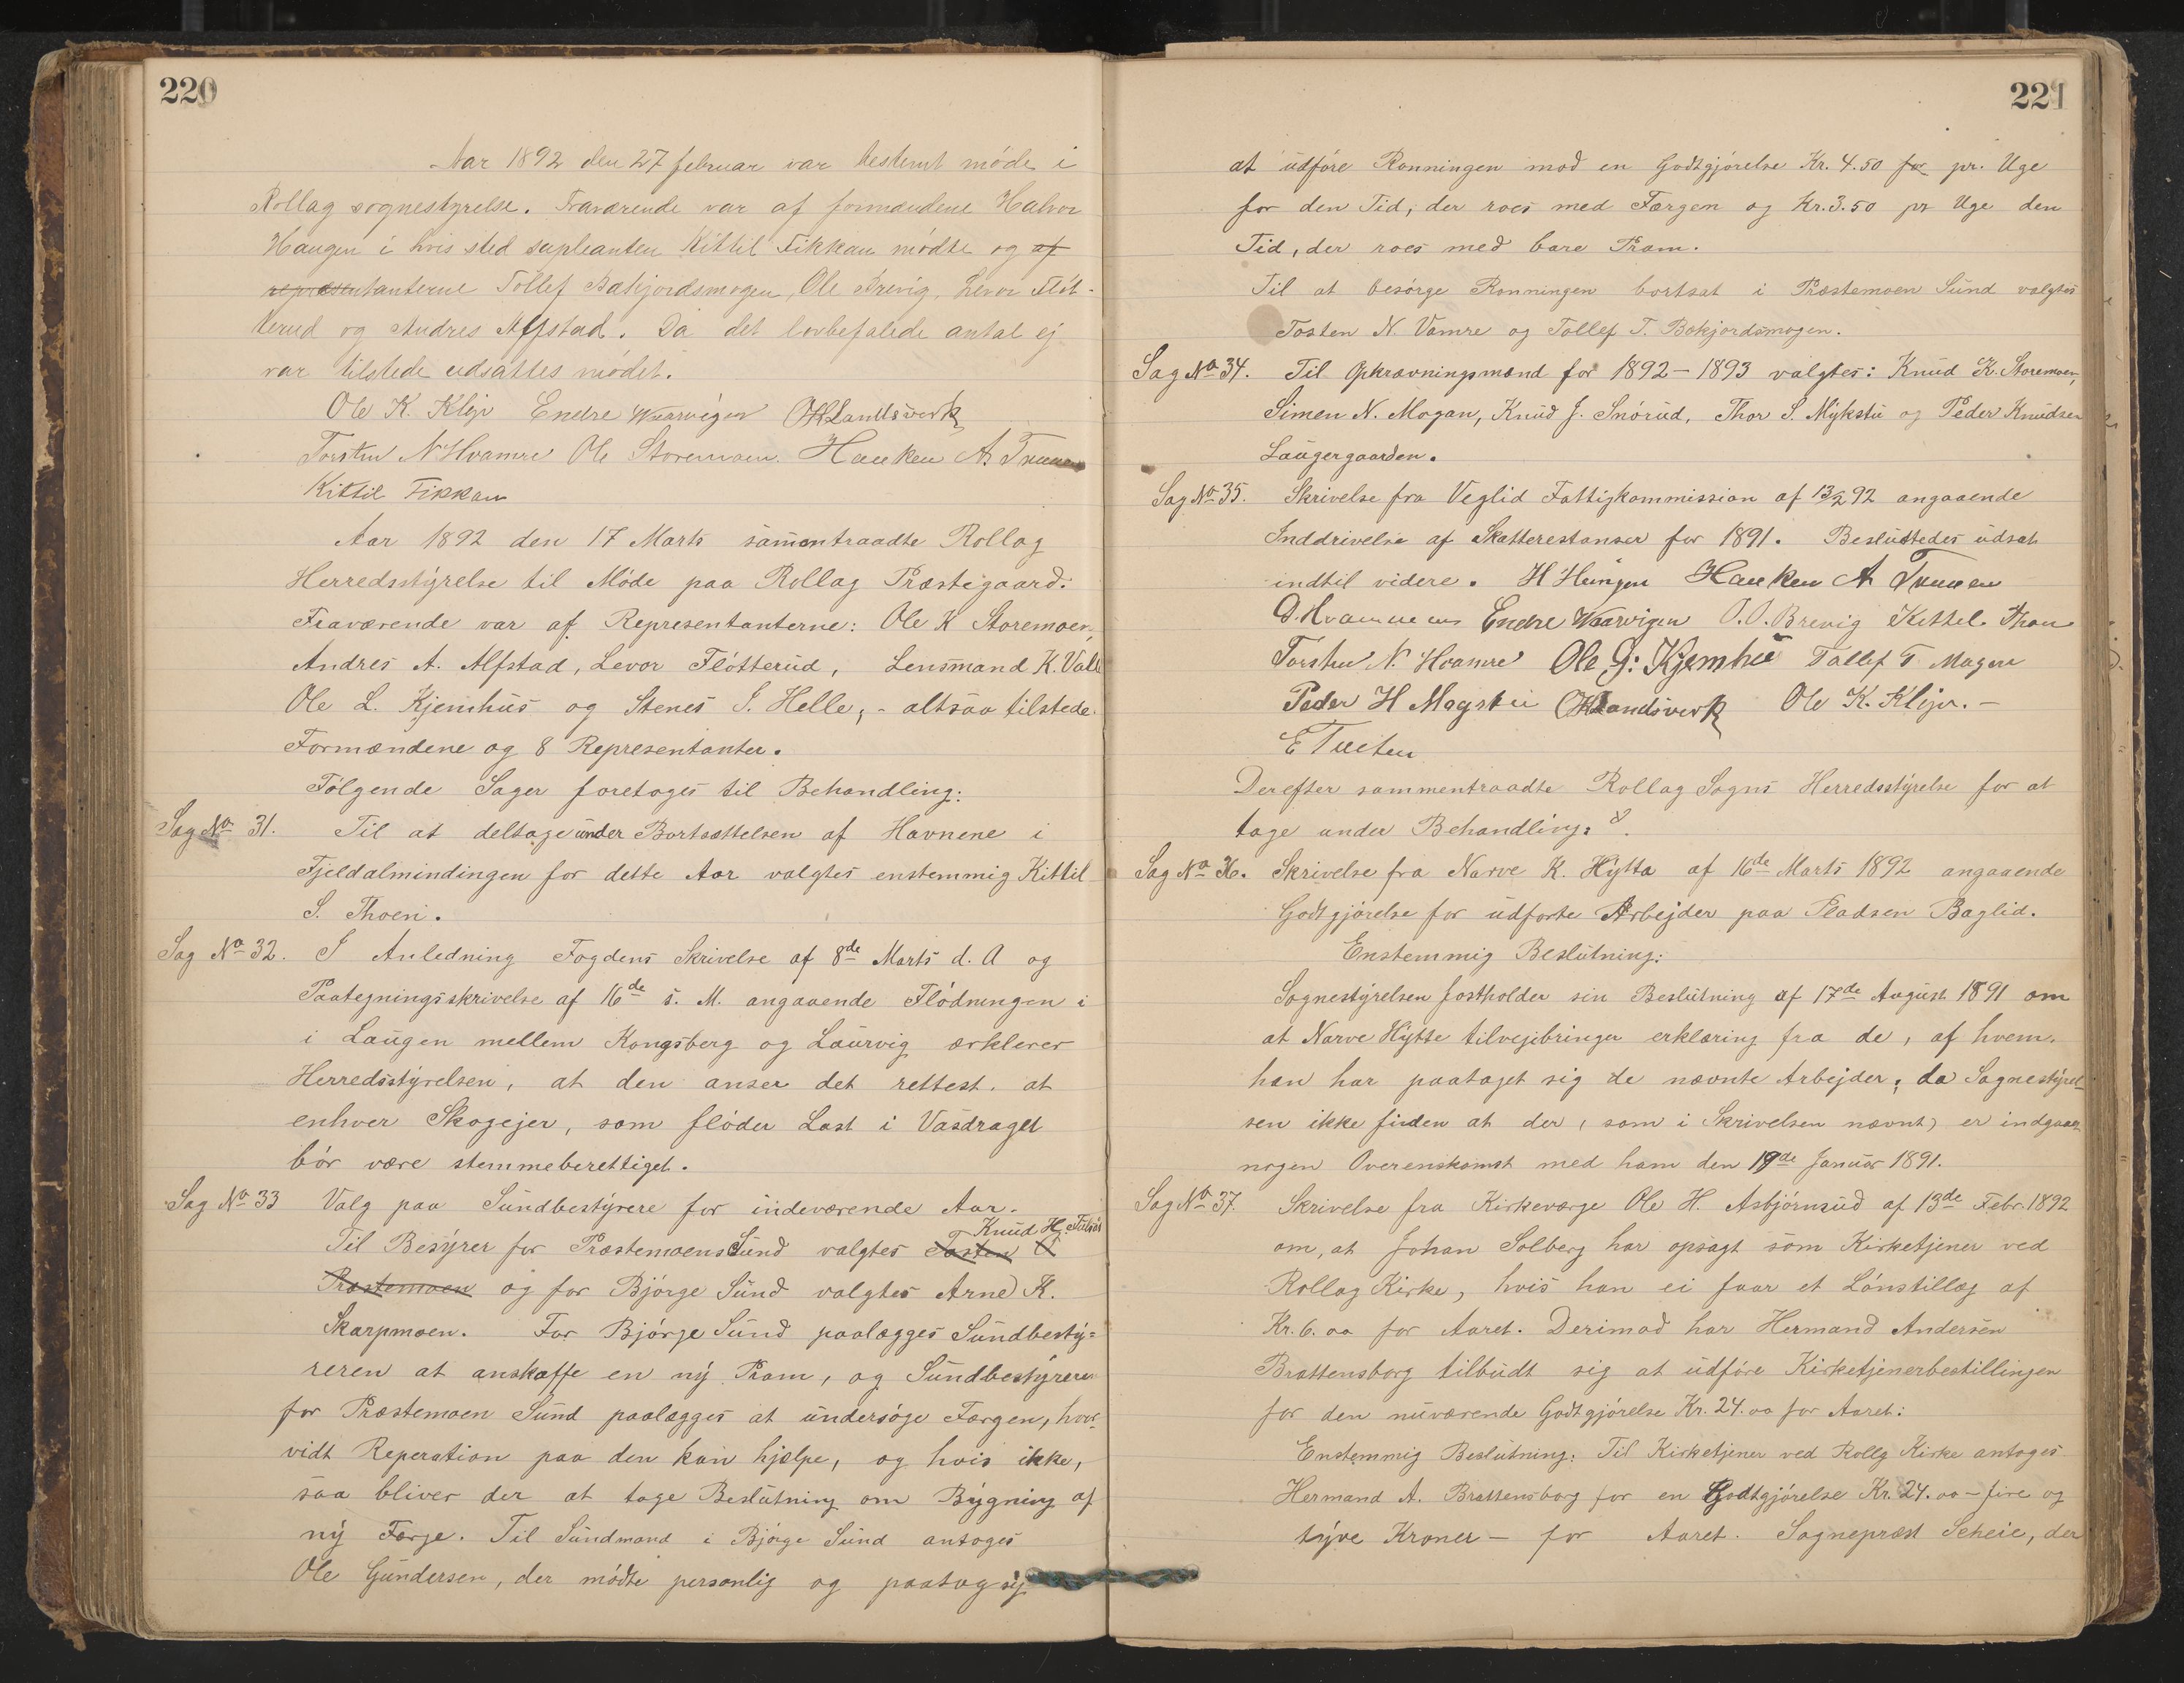 220
Aar 1892 den 27 februar var bestemt møde i
Rollag sognestyrelse. Fraværende var af formændene Halvor
Haugen i hvis sted supleanten Kittil Fikkan mødte og af
repræsentanterne Tollef Bakjordsmogen, Ole Brevig, Levor Fløt-
terud og Andres Alfstad. Da det lovbefalede antal ej
var tilstede udsattes mødet.
Ole K. Klejv Endre Waarvigen OHLandsverk
Torsten N Hvamre Ole Storemoen. Hauken A. Traaen
Kittil Fikkan
Aar 1892 den 17 Marts sammentraadte Rollag
Herredsstyrelse til Møde paa Rollag Præstegaard.
Fraværende var af Representanterne: Ole K Storemoen,
Andres A. Alfstad, Levor Fløtterud, Lensmand K. Vale
Ole L. Kjemhus og Stenes S. Helle, - altsaa tilstede
Formændene og 8 Representanter.
Følgende Sager foretoges til Behandling:
Sag No 31. Til at deltage under Bortsættelsen af Havnene i
Fjeldalmindingen for dette Aar valgtes enstemmig Kittil
S. Thoen.
Sag No 32. I Anledning Fogdens Skrivelse af 8de Marts d. A og
Paategningsskrivelse af 16de s. M. angaaende Flødningen i
i Laugen mellem Kongsberg og Laurvig ærklerer
Herredsstyrelsen, at den anser det rettest at
enhver Skogejer, som fløder Last i Vasdraget
bør være stemmeberettiget.
Sag No 33 Valg paa Sundbestyrere for indeværende Aar.
Knud H.
Til Besyrer for Præstemoens Sund valgtes Tosten T
Præstemoen og for Bjørge Sund valgtes Arne K.
Skarpmoen. For Bjørge Sund paalægges Sundbesty-
reren at anskaffe en ny Pram, og Sundbestyreren
for Præstemoen Sund paalægges at undersøge Færgen, hvor-
vidt Reperation paa den kan hjælpe, og hvis ikke,
saa bliver der at tage Beslutning om Bygning af
ny Færge. Til Sundmand i Bjørge Sund antoges
Ole Gundersen, der mødte personlig og paatog sig
221
at udføre Roningen mod en Godtgjørelse Kr. 4.50 for pr. Uge
for den Tid, der roes med Færgen og Kr. 3.50 pr Uge den
Tid, der roes med bare Pram.
Til at besørge Ronningen bortsat i Præstemoen Sund valgtes
Tosten N. Vamre og Tollef T. Bakjordsmogen.
Sag No 34. Til Opkrævningsmænd for 1892-1893 valgtes: Knud K. Storemoen,
Simen N. Mogan, Knud J. Snørud, Thor S. Mykstu og Peder Knudsen
Laugergaarden.
Sag No 35. Skrivelse fra Veglid Fattigkommission af 13/2 92 angaaende
Inddrivelse af Skatterestanser for 1891. Besluttedes udsat
indtil videre. H Haugen Hauken A Traaen
Endre Waarvigen O.O. Brevig Kittel Thoen
Torsten N. Hvamre Ole G: Kjemhus Tollef T. Mogen
Peder H Mogstu OHLandsverk Ole K. Klejv. -
E Tveiten
Derefter sammentraadte Rollag Sogns Herredsstyrelse for at
tage under Behandling:
Sag No 36. Skrivelse fra Narve K. Hytta af 16de Marts 1892 angaaende
Godtgjørelse for udførte Arbejder paa Pladsen Baglid.
Enstemmig Beslutning:
Sognestyrelsen fastholder sin Beslutning af 17de August 1891 om
at Narve Hytte tilvejebringer erklæring fra de, af hvem
han har paataget sig de nævnte Arbejder, da Sognestyrel-
sen ikke finden at der, som i Skrivelsen nævnt, er indgaaet
nogen Overenskomst med ham den 19de Januar 1891.
Sag No 37. Skrivelse fra Kirkeværge Ole H. Asbjørnsud af 13de Febr. 1892
om, at Johan Solberg har opsagt som Kirketjener ved
Rollag Kirke, hvis han ei faar et Lønstillæg af
Kr. 6.00 for Aaret. Derimod har Hermand Andersen
Brattensborg tilbudt sig at udføre Kirketjenerbestillingen
for den nuværende Godtgjørelse Kr. 24.00 for Aaret:
Enstemmig Beslutning: Til Kirketjener ved Rollg Kirke antoges
Hermand A. Brattensborg for en Godtgjørelse Kr. 24.00 - fire og
tyve Kroner - for Aaret. Sognepræst Scheie, der